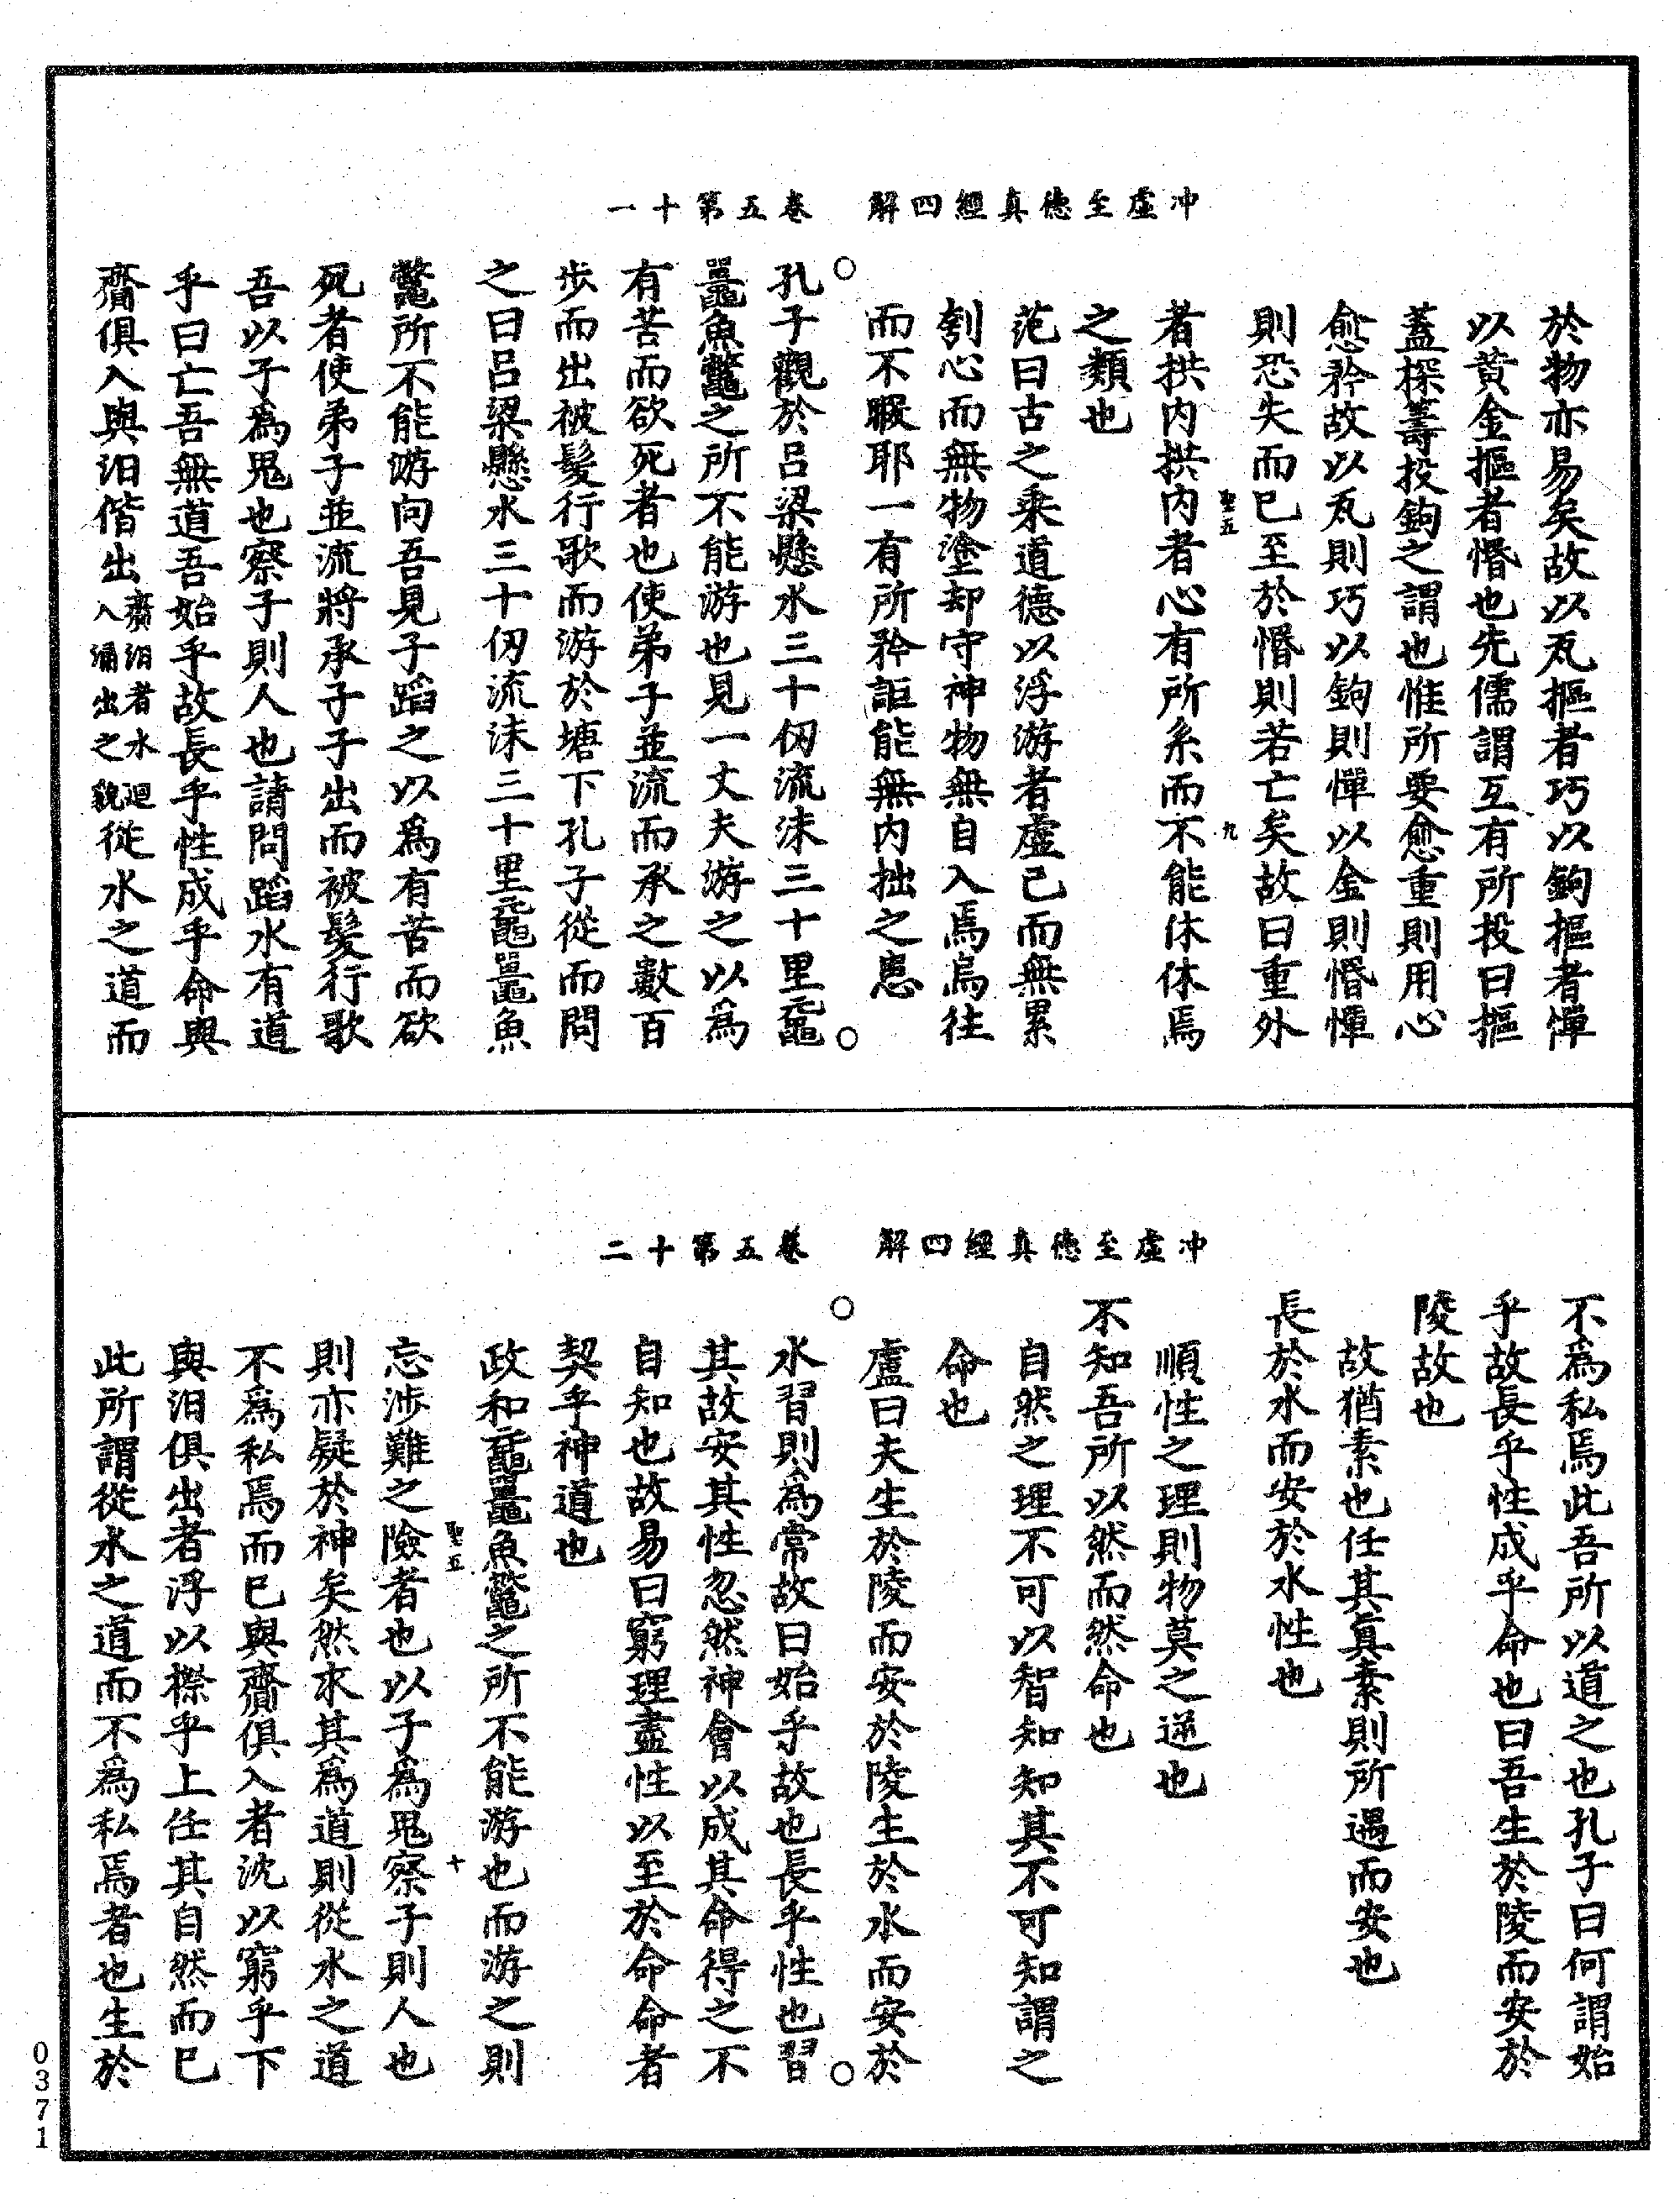 冲虛至德真經四解　卷五第十一
於物亦易矣故以瓦摳者巧以鉤摳者憚
以黃金摳者惛也先儒謂互有所投曰摳
蓋探籌投鉤之謂也惟所要愈重則用心
愈矜故以瓦則巧以鉤則憚以金則惛憚
則恐失而已至於惛則若亡矣故曰重外
聖五　九
者拱內拱內者心有所系而不能休休焉
之類也
范曰古之乘道德以浮游者虛己而無累
刳心而無物塗却守神物無自入焉烏往
而不暇耶一有所矜詎能無內拙之患
孔子觀於呂梁懸水三十仞流沫三十里黿
鼉魚鼈之所不能游也見一丈夫游之以為
有苦而欲死者也使弟子並流而承之數百
步而出被髮行歌而游於塘下孔子從而問
之曰呂梁懸水三十仞流沫三十里黿鼉魚
鼈所不能游向吾見子蹈之以為有苦而欲
死者使弟子並流將承子子出而被髮行歌
吾以子為鬼也察子則人也請問蹈水有道
乎曰亡吾無道吾始乎故長乎性成乎命與
齎俱入與汩偕出齎汩者水迴入涌出之貌從水之道而
冲虛至德真經四解　卷五第十二
不為私焉此吾所以道之也孔子曰何謂始
乎故長乎性成乎命也曰吾生於陵而安於
陵故也
故猶素也任其真素則所遇而安也
長於水而安於水性也
順性之理則物莫之逆也
不知吾所以然而然命也
自然之理不可以智知知其不可知謂之
命也
盧曰夫生於陵而安於陵生於水而安於
水習則為常故曰始乎故也長乎性也習
其故安其性忽然神會以成其命得之不
自知也故易曰窮理盡性以至於命命者
契乎神道也
政和黿鼉魚鼈之所不能游也而游之則
聖五　十
忘涉難之險者也以子為鬼察子則人也
則亦疑於神矣然求其為道則從水之道
不為私焉而已與齎俱入者沈以窮乎下
與汩俱出者浮以際乎上任其自然而已
此所謂從水之道而不為私焉者也生於
0371